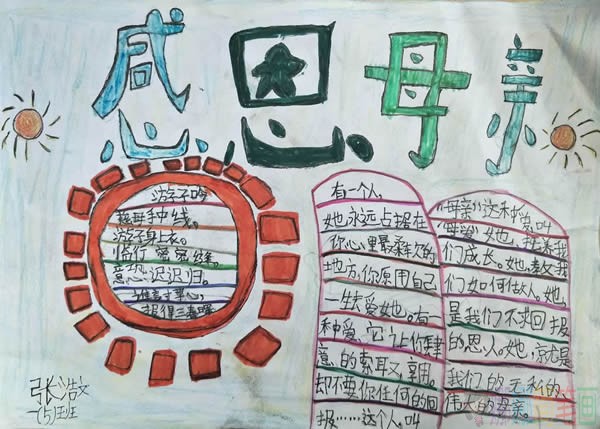 感恩母亲
游子吟
慈母手中线。
游子身上衣。
临行密密缝。
意恐迟迟归。
谁言寸草心，
报得三春晖
有一个人，
她永远占据在
你心里最柔软的
地方，你愿用自己
一生去爱她。有一
种爱，它让你肆
意的索取，享用。
却不要你任何的回
报……这个人。叫
"母亲"！这种爱。叫
"母爱"！她，扶养我
们成长。她，教我
们如何做人。她，
是我们不求回报
的恩人。她，就是
我们的无私的、
伟大的母亲。
张浩文
一(5)班